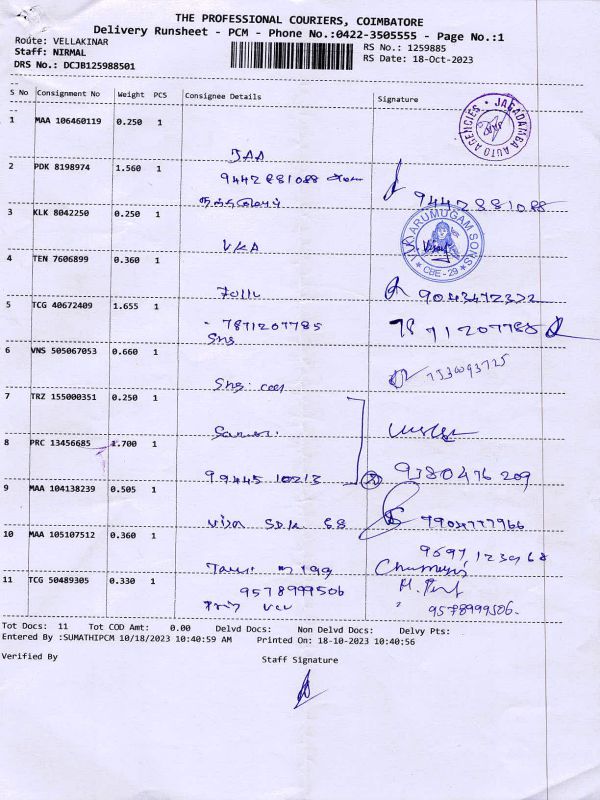 THE PROFESSIONAL COURIERS, COIMBATORE
Delivery Runsheet - PCM - Phone No.:0422-3505555 - Page No.:1
Route: VELLAKINAR
RS No.: 1259885
Staff: NIRMAL
RS Date: 18-Oct-2023
DRS No.: DCJB125988501
S No Consignment No Weight PCS Consignee Details Signature
1 MAA 106460119 0.250 1
JAGADAMBA AUTO AGENCIES
JAA
2 PDK 8198974 1.560 1
9442881088
9442881088
3 KLK 8042250 0.250 1
V.K. ARUMUGAM SONS
CBE - 29
VKA
4 TEN 7606899 0.360 1
9043472322
5 TCG 40672409 1.655 1
- 7871207785
7871207785
Sns
6 VNS 505067053 0.660 1
Sns
7 TRZ 155000351 0.250 1
8 PRC 13456685 1.700 1
9944510213
9380476209
9 MAA 104138239 0.505 1
10 MAA 105107512 0.360 1
11 TCG 50489305 0.330 1
9578999506
9578999506
Tot Docs: 11 Tot COD Amt: 0.00 Delvd Docs: Non Delvd Docs: Delvy Pts:
Entered By :SUMATHIPCM 10/18/2023 10:40:59 AM Printed On: 18-10-2023 10:40:56
Verified By Staff Signature